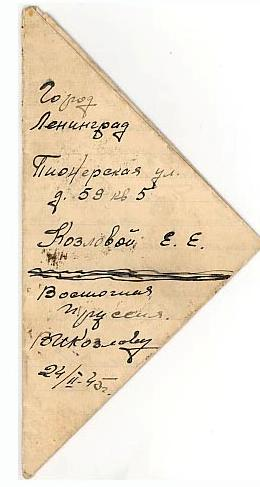 Город
Ленинград
Пионерская ул.
д. 59 кв 5
Козловой Е. Е.
Восточная
Пруссия.
В.И.Козлову
24/II-45г.